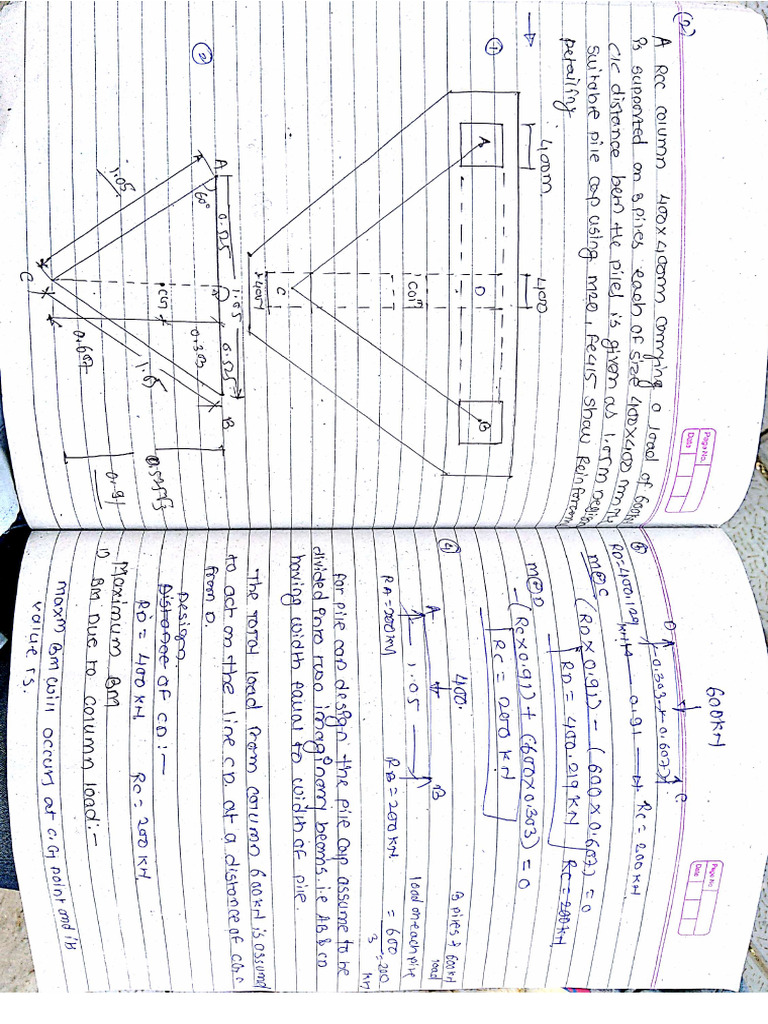 (2)
Page No.
Date
A RCC column 400x400mm carrying a load of 600kN
is supported on 3 piles each of size 400x400 mm. My
c/c distance betn the piles is given as 1.05m Design
suitable pile cap using M20, Fe415 show Reinforcement
Detailing
①
400m
400
A
D
B
coln
C
400
②
A
0.525
1.05
0.525
B
60°
D
1.05
CG
0.303
0.607
1.05
C
0.91
Page No.
Date
600kN
③
D
C
0.303
0.607
RD=400.129
0.91
RC = 200KN
M@C
(RD x 0.91) - (600 x 0.607) = 0
RD = 400.219 KN
RC=200KN
M@D
-(RC x 0.91) + (600x0.303) = 0
RC = 200 KN
④
400.
3 piles & 600kN load
A
B
1.05
load on each pile
RA=200KN
RB=200KN
= 600/3 = 200 KN
For pile cap design the pile cap assume to be
divided into two imaginary beams. i.e AB & CD
having width equal to width of pile.
The total load from column 600kN is assumed
to act on the line C.D. at a distance of
from D.
Design
Distance of CD:-
RD = 400KN RC = 200KN.
Maximum BM
1) BM Due to column load:-
Maxm BM will occurs at C.G point and its
value is.